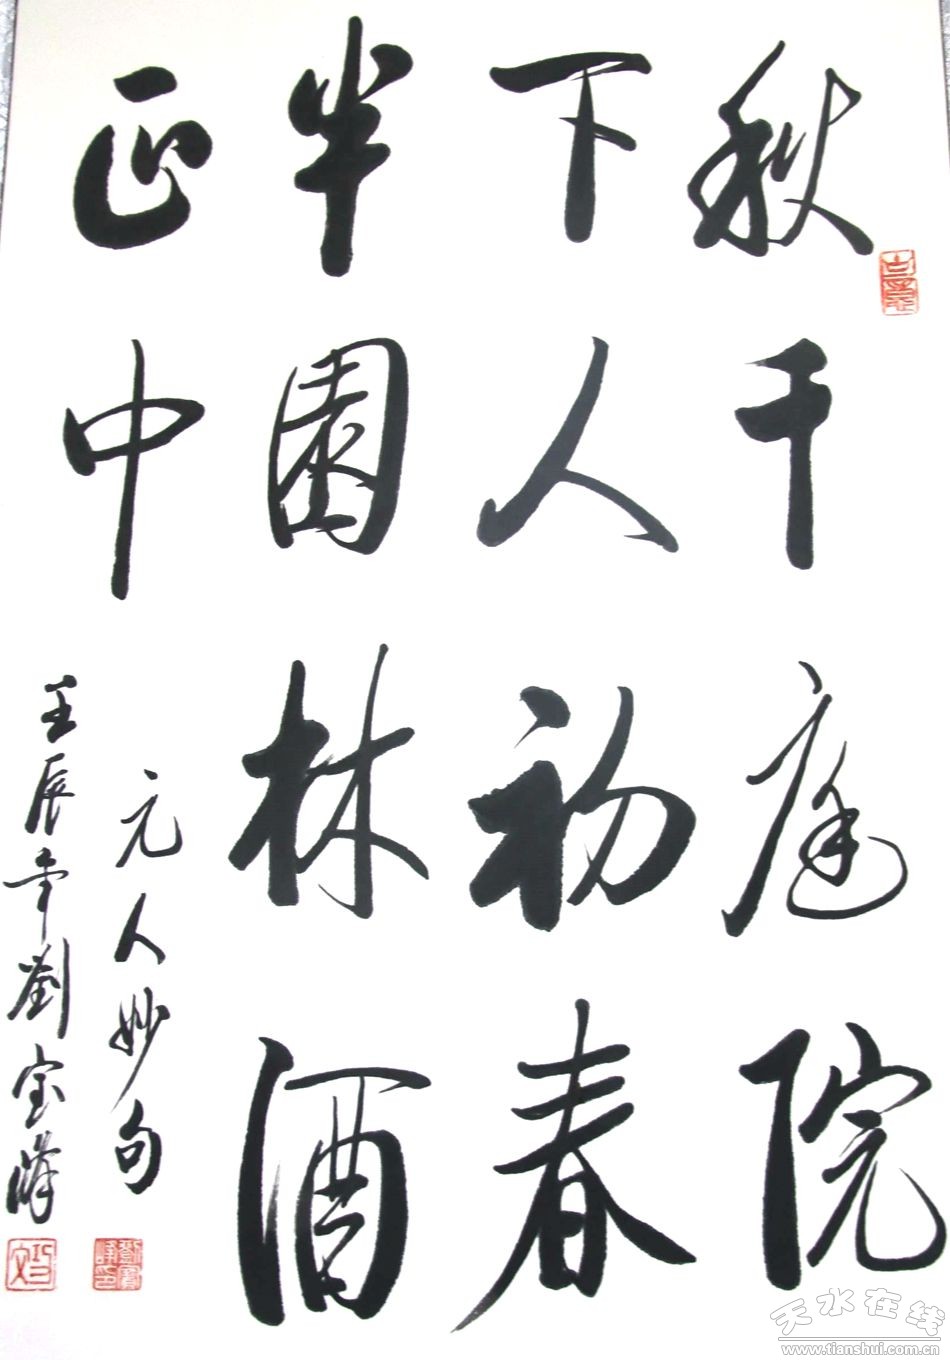 秋千庭院
下人初春
半園林酒
正中
元人妙句
壬辰年劉宝
天水在线
www.tianshui.com.cn